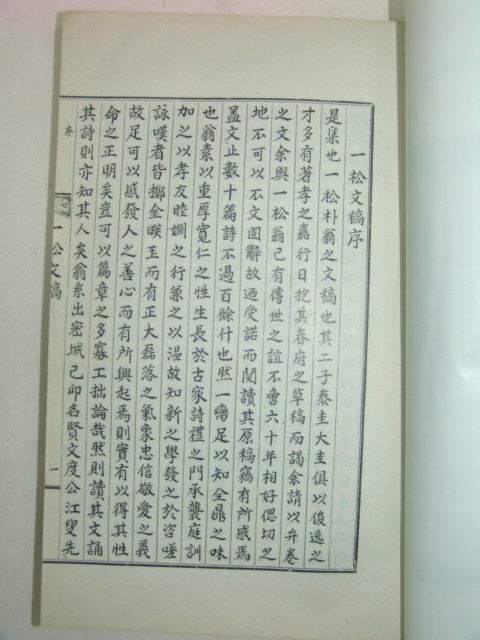 一松文稿序
是集也一松朴翁之文稿也其二子泰圭大圭俱以俊逸之
才多有著孝之嘉行日抱其春府之草稿而謁余請以弁卷
之文余與一松翁已有傳世之誼不啻六十年相好偲切之
地不可以不文固辭故迺受諾而閱讀其原稿竊有所感焉
盖文止數十篇詩不過百餘什也然一臠足以知全鼎之味
也翁素以重厚寬仁之性生長於古家詩禮之門承襲庭訓
加之以孝友睦婣之行兼之以溫故知新之學發之於咨嗟
詠嘆者皆擲金暎玉而有正大磊落之氣象忠信敬愛之義
故足可以感發人之善心而有所興起焉則實有以得其性
命之正明矣豈可以篇章之多寡工拙論哉然則讀其文誦
其詩則亦知其人矣翁系出密城己卯名賢文度公江叟先
序
一松文稿
一